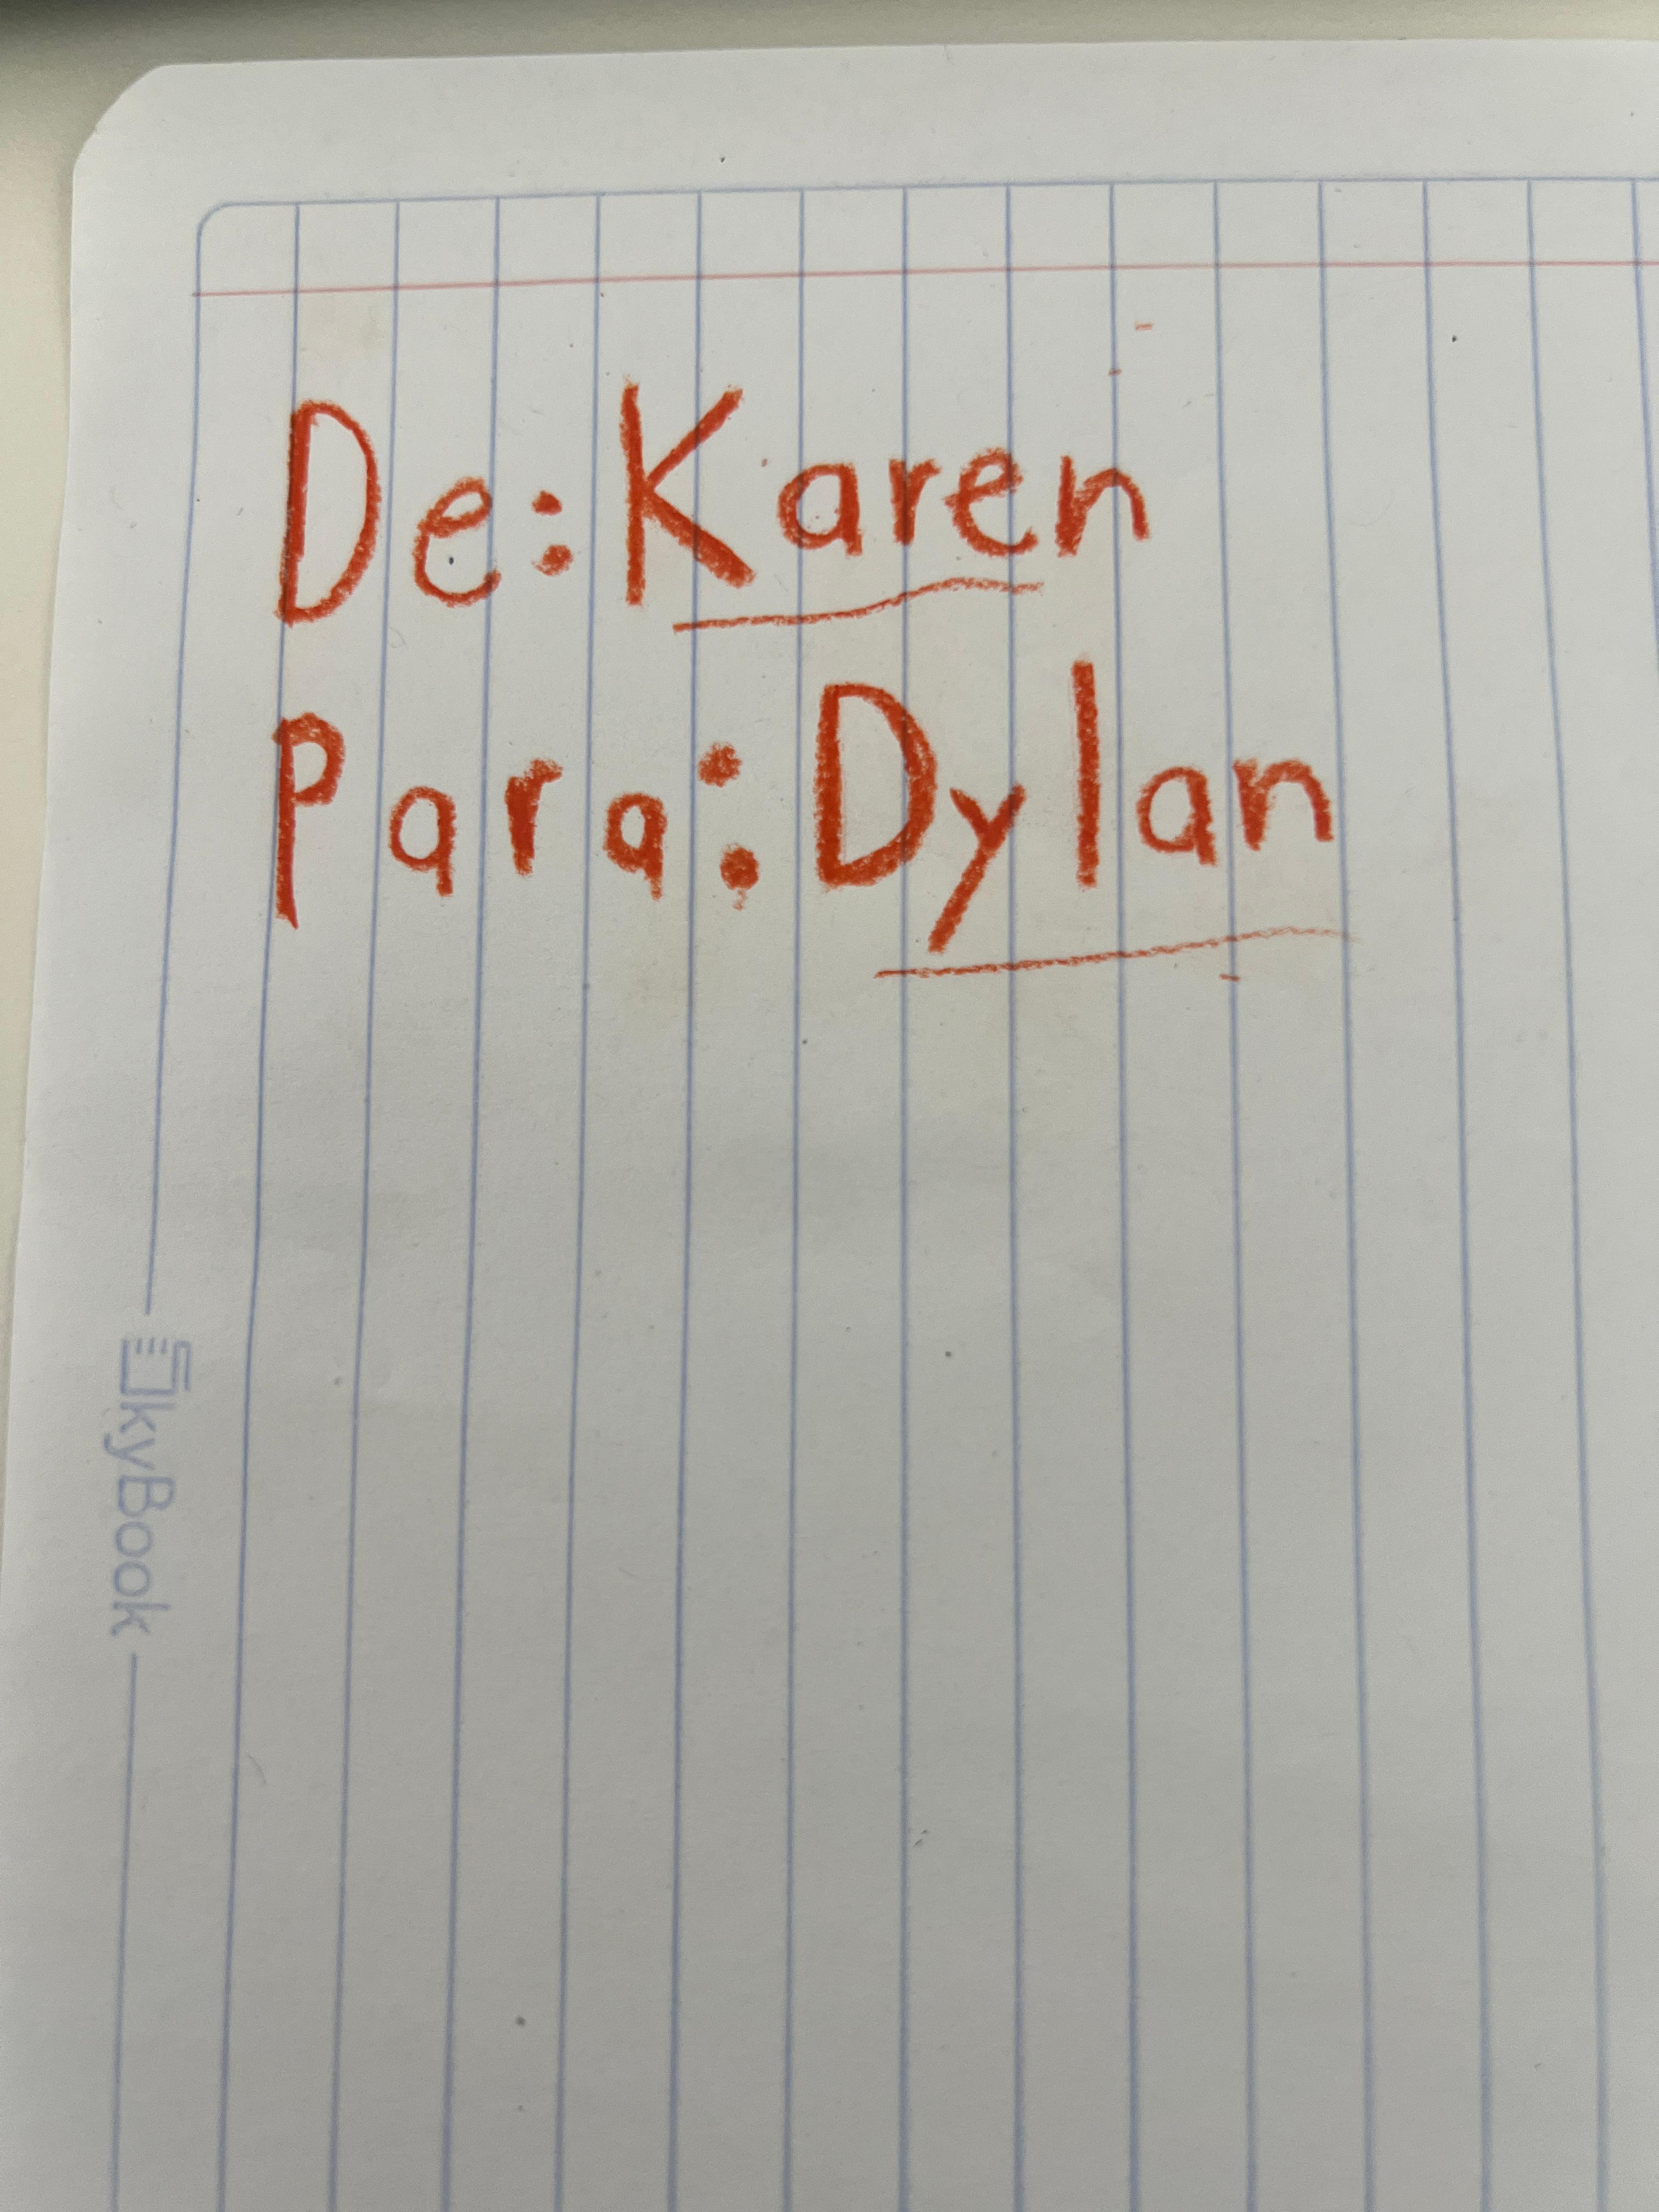 De: Karen
Para: Dylan
SkyBook